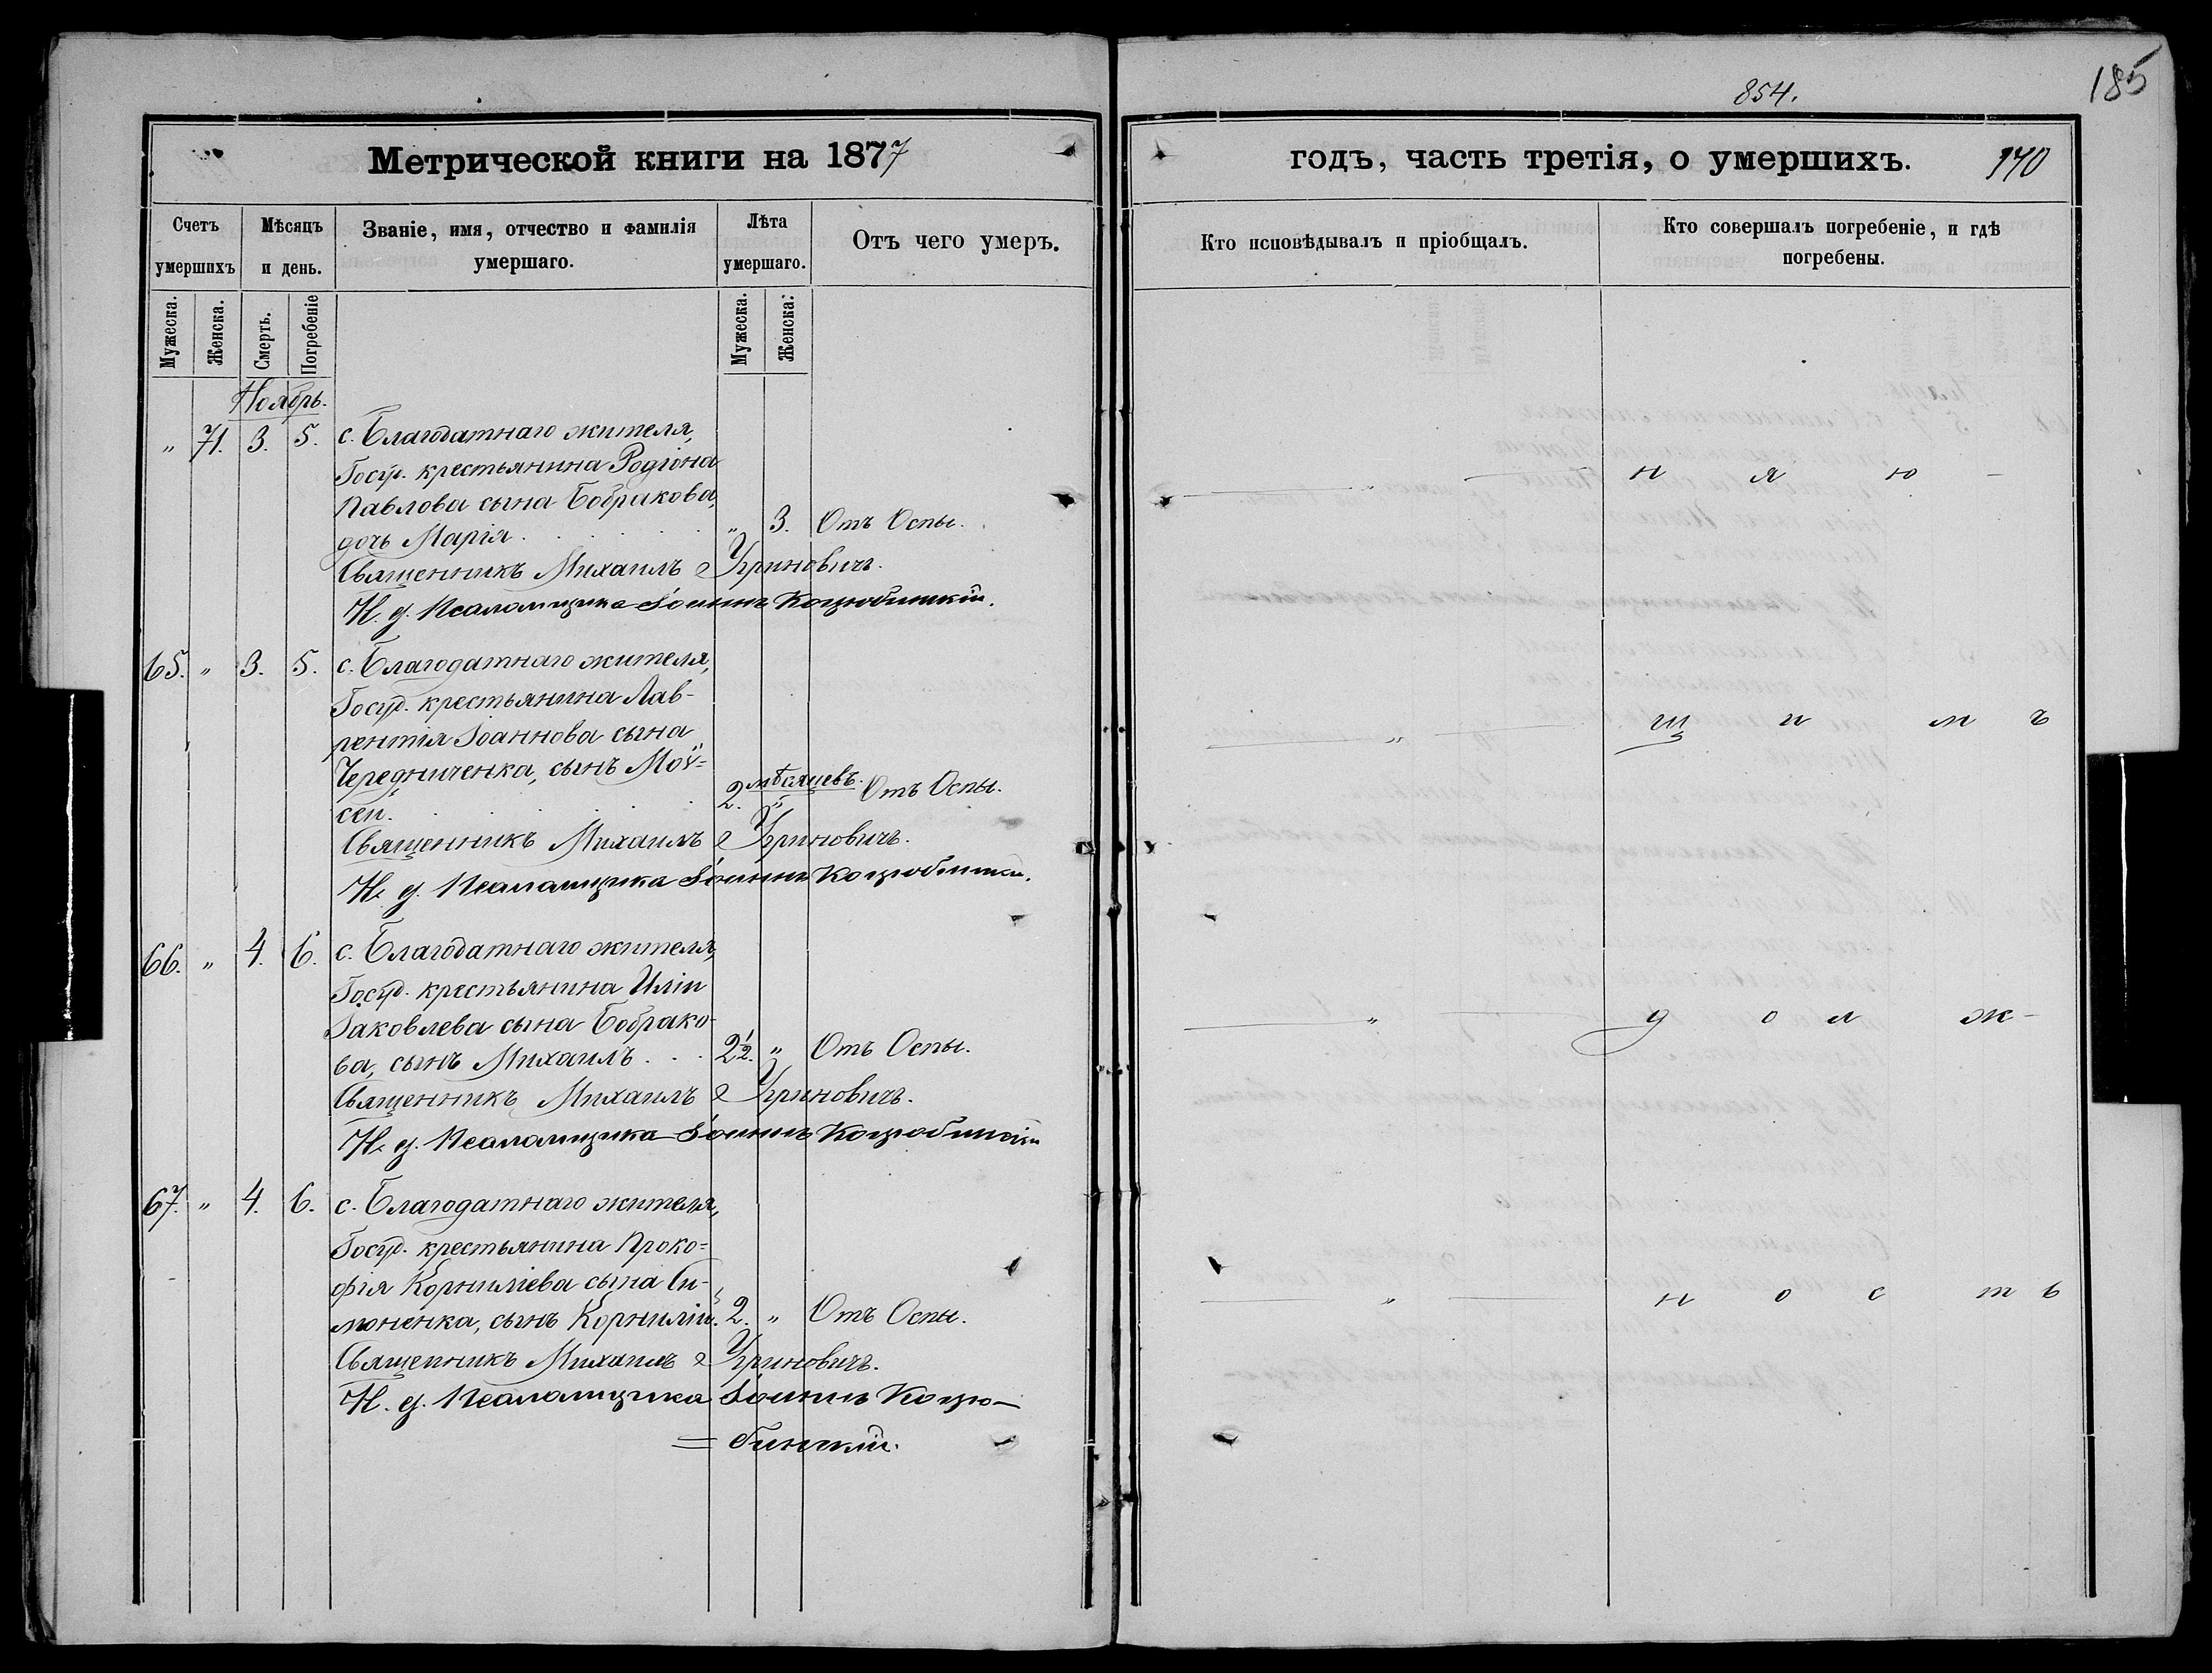 854.
185
Метрической книги на 1877
годъ, часть третія, о умершихъ. 170
Счетъ умершихъ
Мѣсяцъ и день.
Званіе, имя, отчество и фамилія умершаго.
Лѣта умершаго.
Отъ чего умеръ.
Кто исповѣдывалъ и пріобщалъ.
Кто совершалъ погребеніе, и гдѣ погребены.
Мужеска.
Женска.
Смерть.
Погребеніе
Мужеска.
Женска.
Ноябрь.
„ 71. 3. 5. с. Благодатнаго жителя,
Госуд. крестьянина Родіона
Павлова сына Бобракова,
дочь Марія . . . . . „ 3. Отъ Оспы.
„ н я ю -
Священникъ Михаилъ Угриновичъ.
И. д. Псаломщика Іоаннъ Коцюбинскій.
65. „ 3. 5. с. Благодатнаго жителя,
Госуд. крестьянина Лав-
рентія Іоаннова сына
Чередниченка, сынъ Моѵ=
сей. . . . . . 2. мѣсяцевъ. „ Отъ Оспы.
„ щ и м ъ
Священникъ Михаилъ Угриновичъ.
И. д. Псаломщика Іоаннъ Коцюбинскій.
66. „ 4. 6. с. Благодатнаго жителя,
Госуд. крестьянина Иліи
Іаковлева сына Бобрако-
ва, сынъ Михаилъ . . . 2½. „ Отъ Оспы.
„ д о л ж -
Священникъ Михаилъ Угриновичъ.
И. д. Псаломщика Іоаннъ Коцюбинскій
67. „ 4. 6. с. Благодатнаго жителя,
Госуд. крестьянина Проко=
фія Корниліева сына Си-
моненка, сынъ Корнилій. 2. „ Отъ Оспы.
„ н о с т ь
Священникъ Михаилъ Угриновичъ.
И. д. Псаломщика Іоаннъ Коцю-
= бинскій.